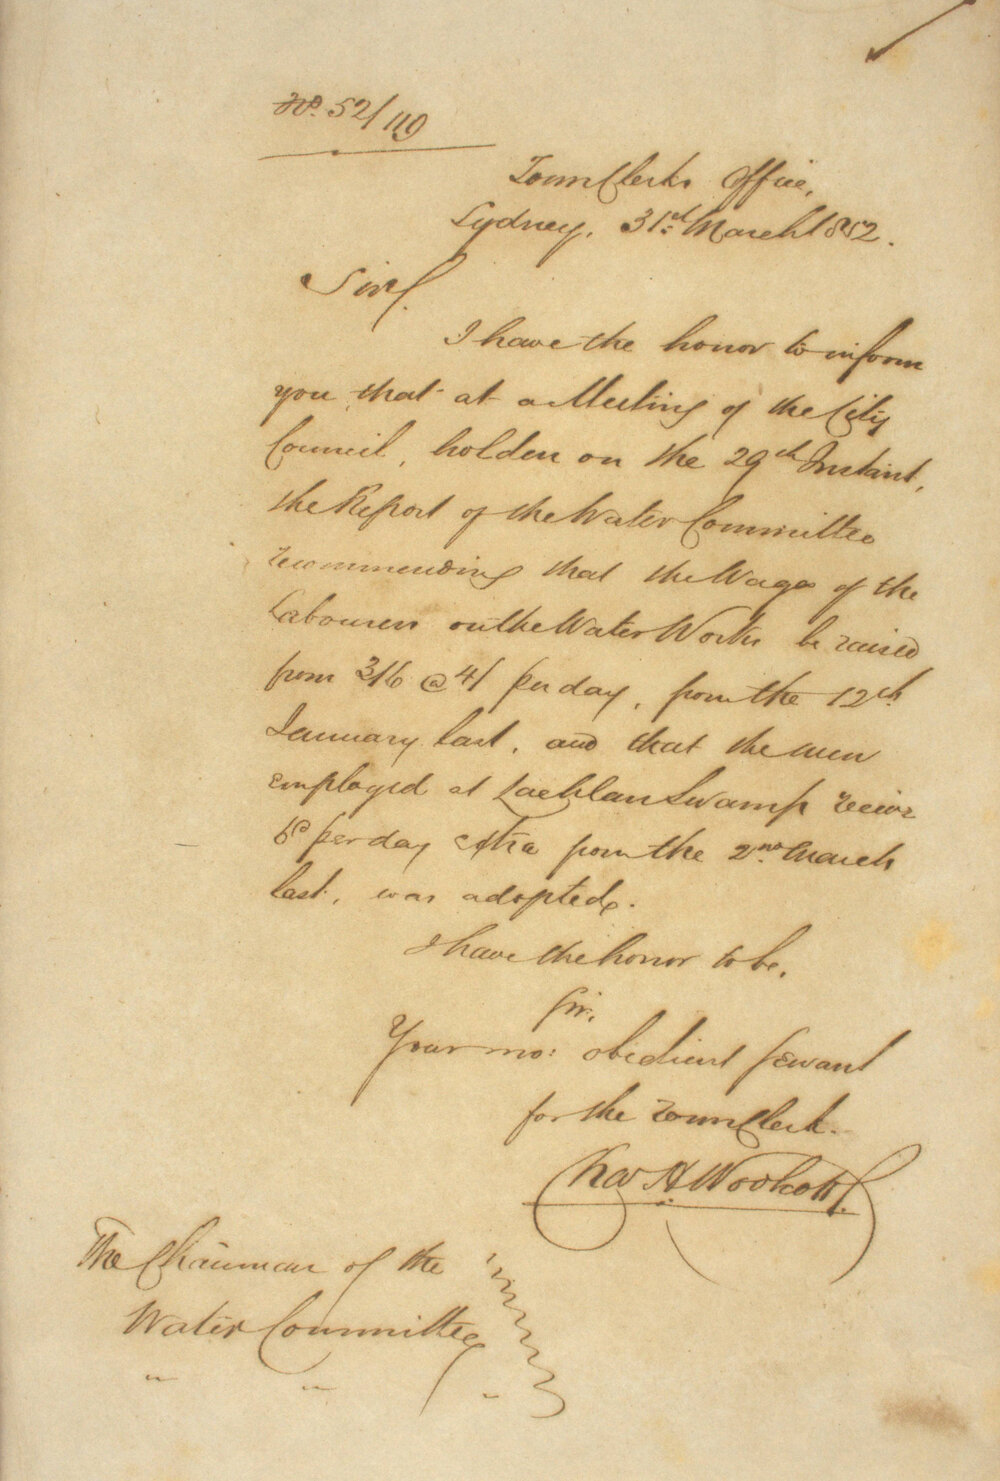 No. 52/119
Town Clerks Office,
Sydney, 31st March 1852.
Sir,
I have the honor to inform
you, that at a Meeting of the City
Council, holden on the 29th Instant,
the Report of the Water Committee
recommending that the Wages of the
Labourers on the Water Works be raised
from 3/6 @ 4/ per day, from the 12th
January last, and that the men
employed at Lachlan Swamp receive
6d per day extra from the 2nd March
last, was adopted.
I have the honor to be,
Sir,
Your mo: obedient Servant
for the Town Clerk.
Chas H. Woolcott
The Chairman of the
Water Committee